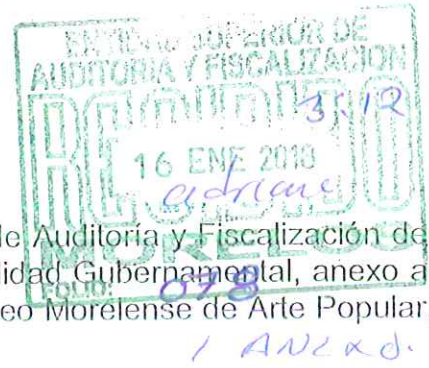 ENTIDAD SUPERIOR DE
AUDITORIA Y FISCALIZACION
RECIBIDO
3:12
16 ENE 2018
adriana
de Auditoría y Fiscalización de
MORELOS
idad Gubernamental, anexo a
FOLIO: 078
eo Morelense de Arte Popular
1 Anexo.